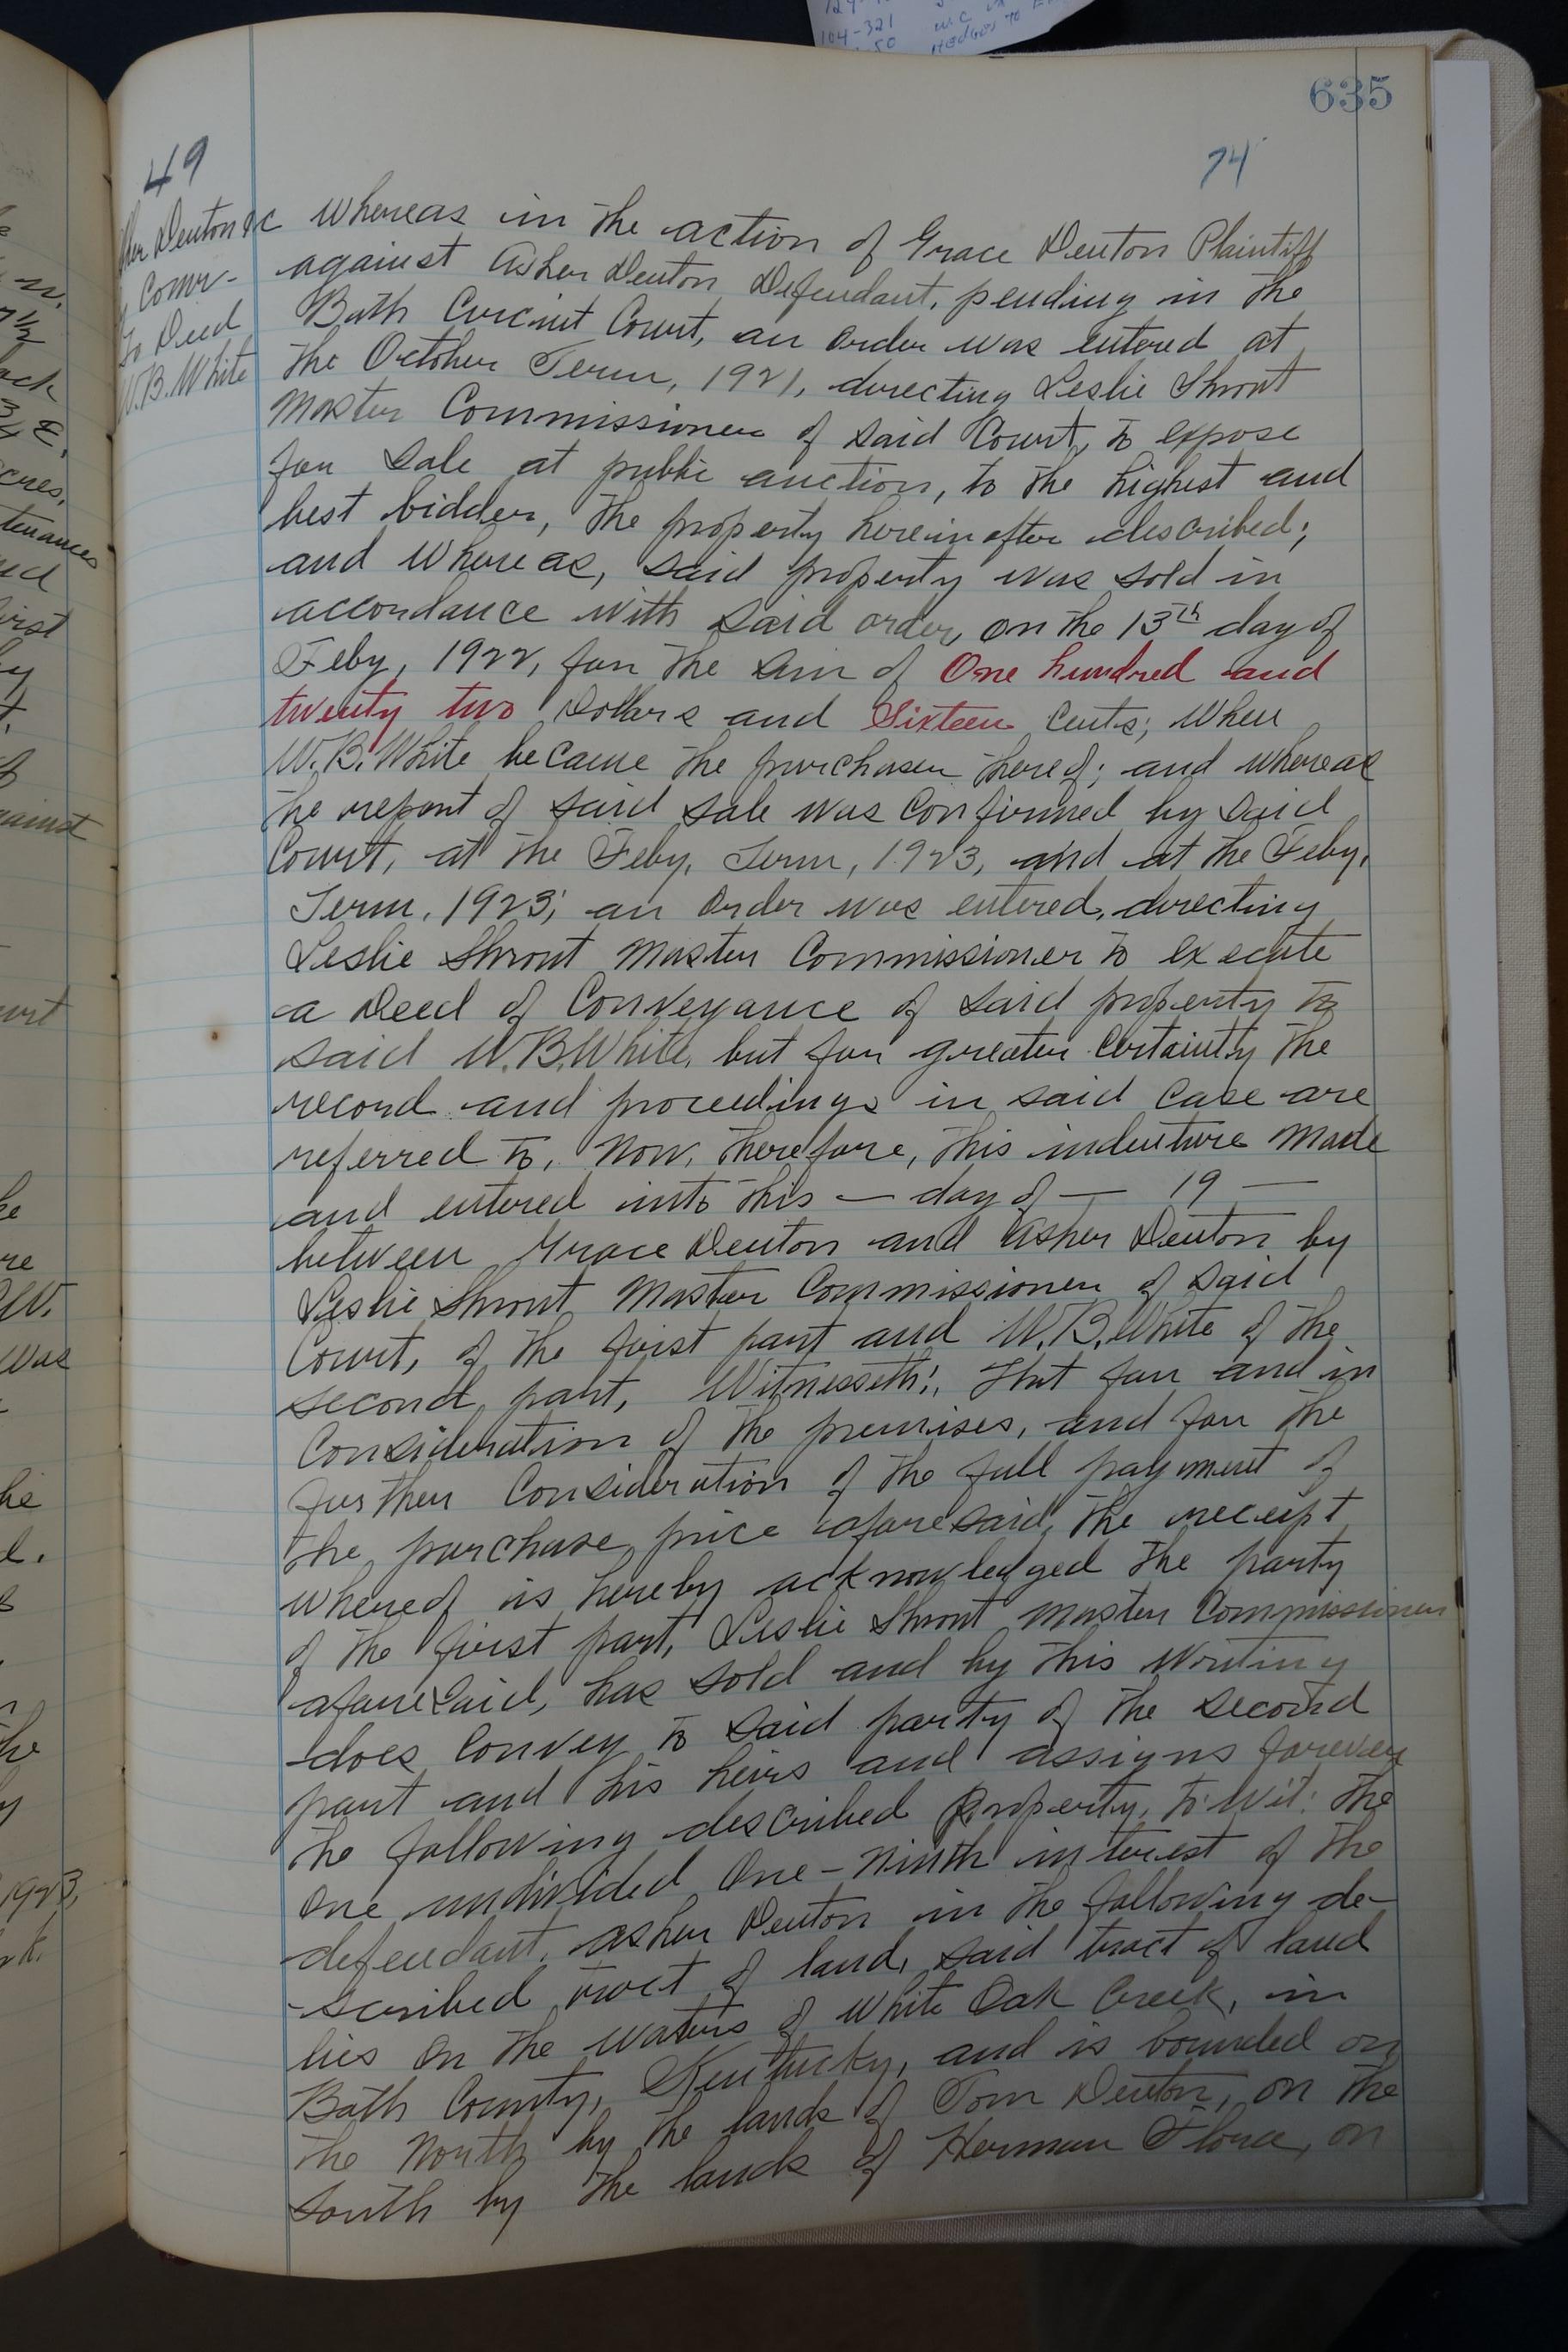 104-321
50
635
49
74
her Denton &c
Comr-
To Deed
W.B. White
Whereas in the action of Grace Denton Plaintiff
against Asher Denton Defendant, pending in the
Bath Circuit Court, an order was entered at
the October Term, 1921, directing Leslie Shrout
Master Commissioner of said Court, to expose
for sale at public auction, to the highest and
best bidder, the property hereinafter described;
and whereas, said property was sold in
accordance with said order, on the 13th day of
Feby, 1922, for the sum of One hundred and
twenty two Dollars and Sixteen Cents; when
W.B. White became the purchaser thereof; and whereas
the report of said sale was confirmed by said
Court, at the Feby. Term, 1923, and at the Feby.
Term, 1923; an order was entered, directing
Leslie Shrout Master Commissioner to execute
a Deed of Conveyance of said property to
said W.B. White, but for greater certainty the
record and proceedings in said case are
referred to, Now, therefore, this indenture made
and entered into this — day of — 19 —
between Grace Denton and Asher Denton by
Leslie Shrout Master Commissioner of said
Court, of the first part and W.B. White of the
second part, Witnesseth:, That for and in
Consideration of the premises, and for the
further Consideration of the full payment of
the purchase price aforesaid, the receipt
whereof is hereby acknowledged the party
of the first part, Leslie Shrout Master Commissioner
aforesaid, has sold and by this writing
does convey to said party of the second
part and his heirs and assigns forever
the following described property, to-wit: the
one undivided One-Ninth interest of the
defendant, Asher Denton in the following de-
scribed tract of land, said tract of land
lies on the waters of White Oak Creek, in
Bath County, Kentucky, and is bounded on
the North by the lands of Tom Denton, on the
South by the lands of Herman Flora, on